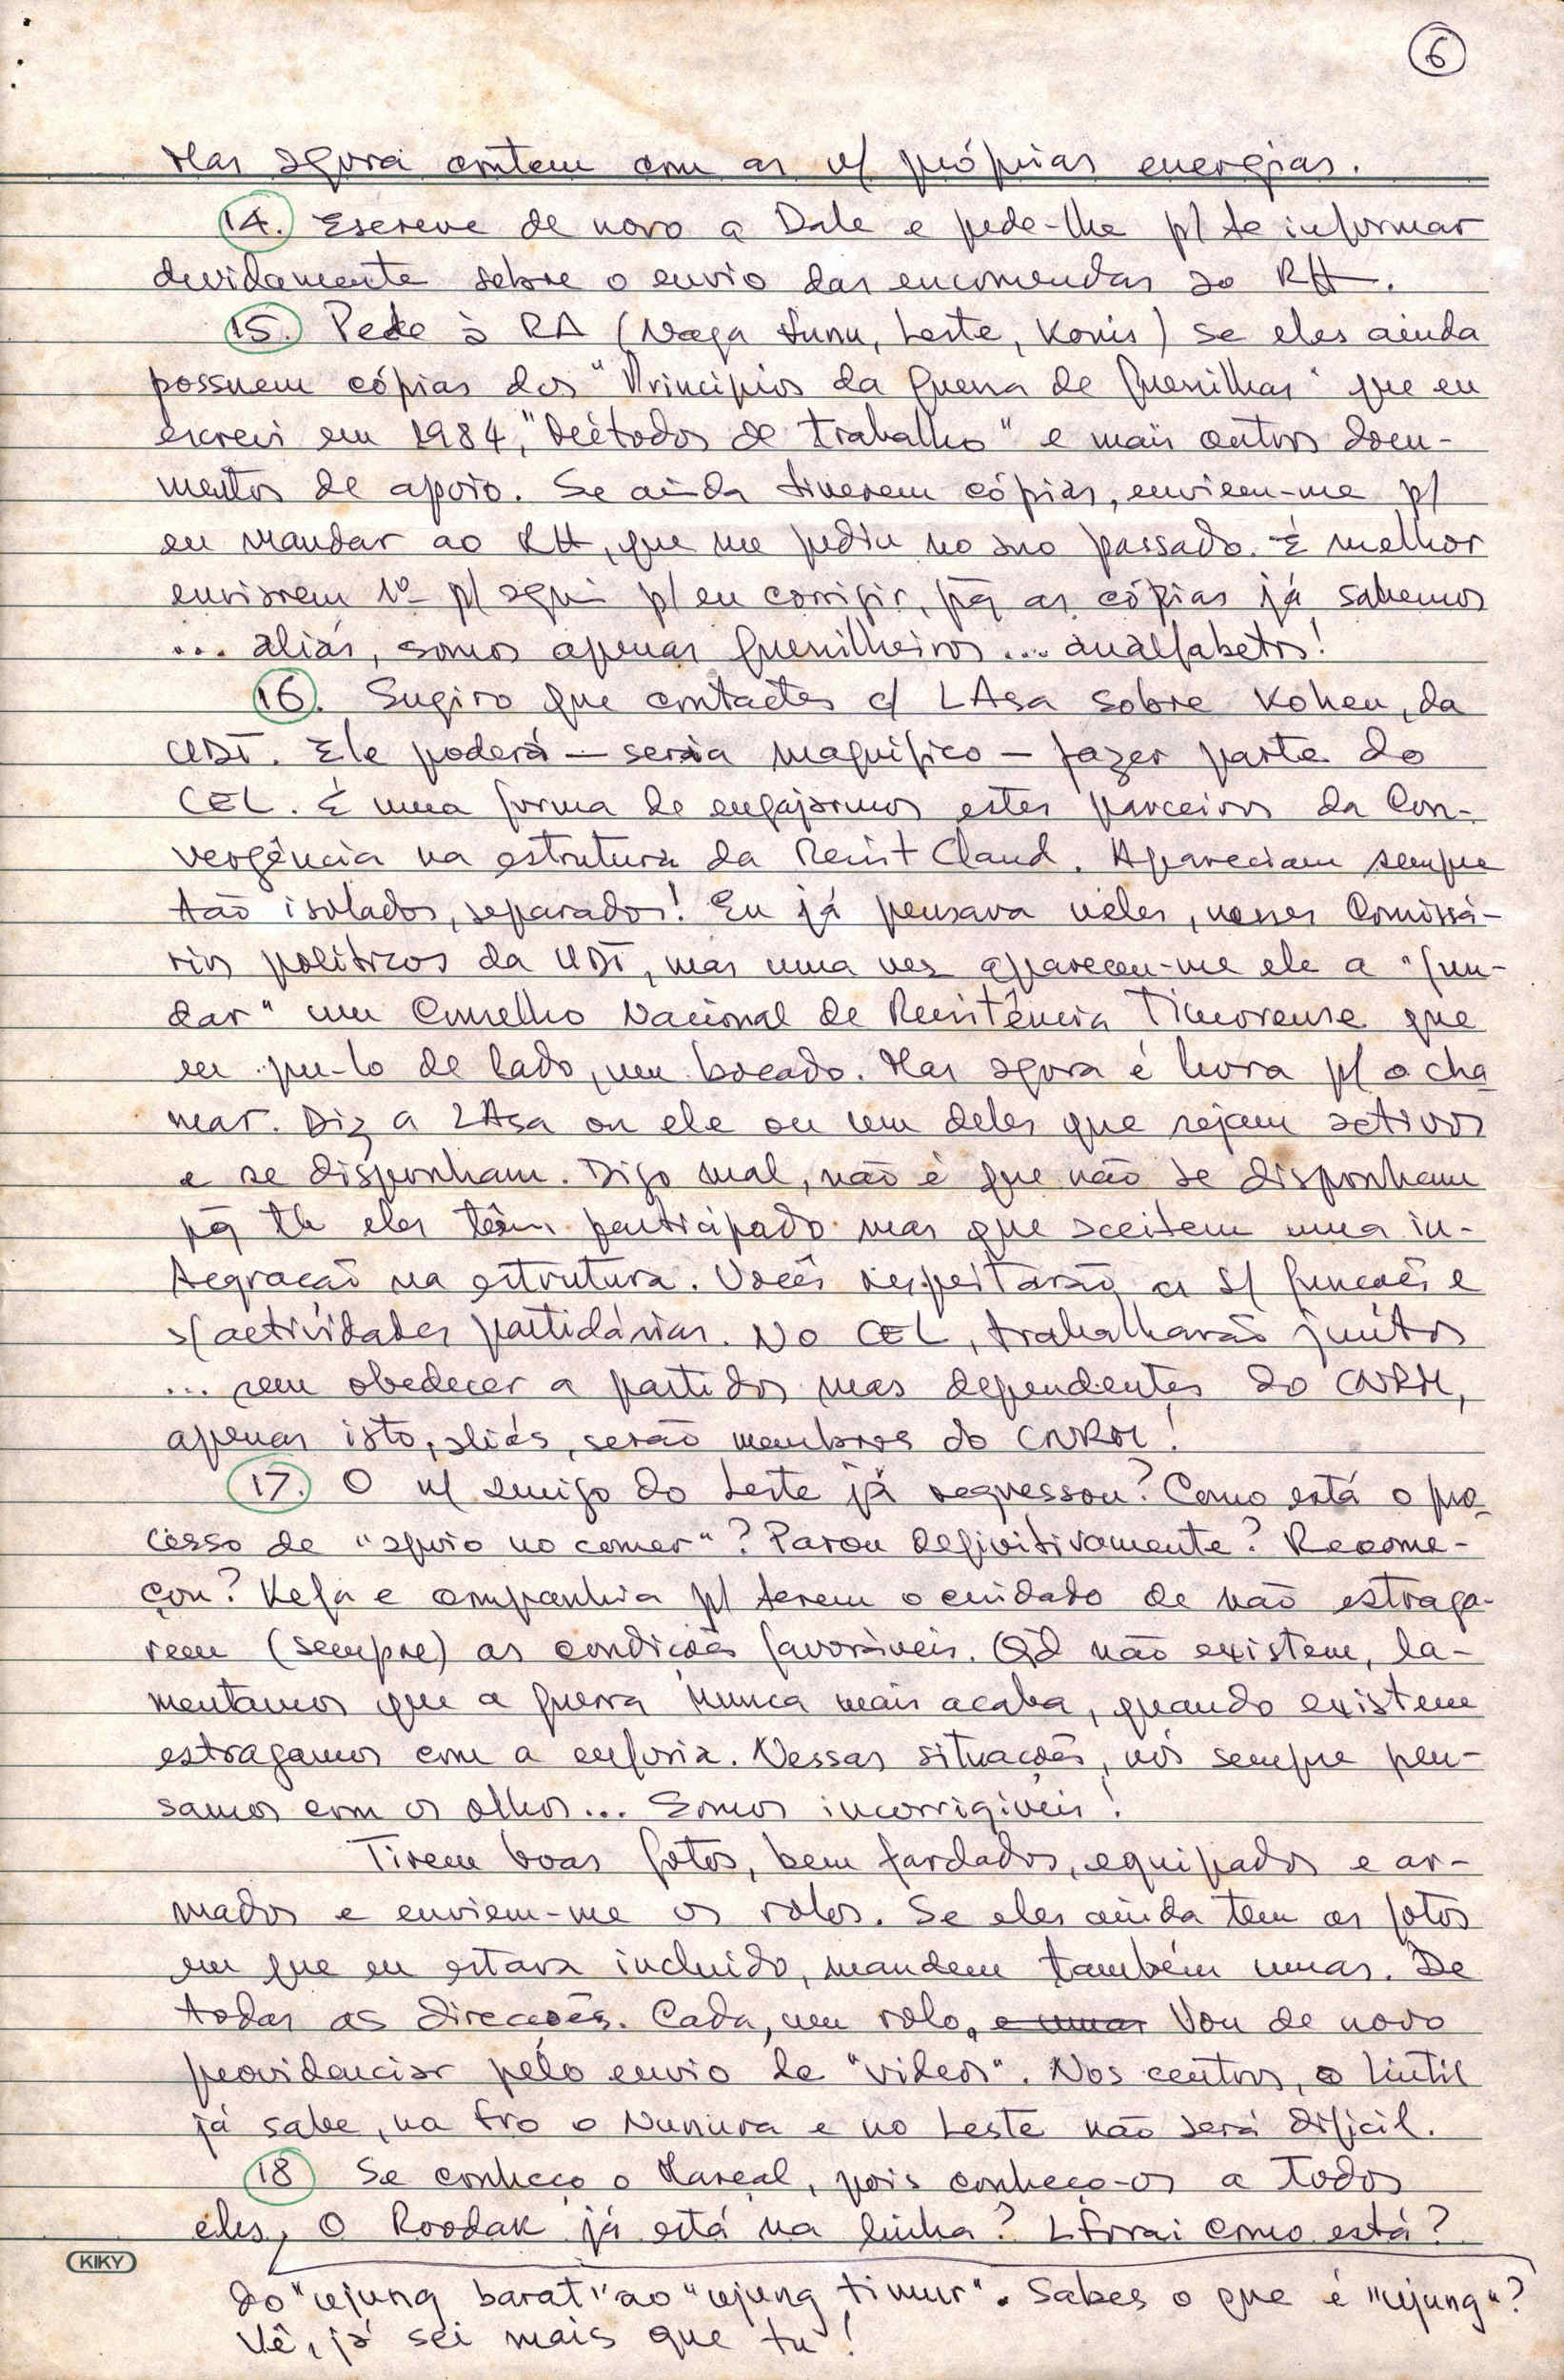 6
Mas agora contem com as v/ próprias energias.
14. Escreve de novo a Dale e pede-lhe p/ te informar
devidamente sobre o envio das encomendas ao RH.
15. Pede à RA (Naga Funu, Leste, Konis) se eles ainda
possuem cópias dos "Princípios da Guerra de Guerrilhas" que eu
escrevi em 1984, "Métodos de trabalho" e mais outros docu-
mentos de apoio. Se ainda tiverem cópias, enviem-me p/
eu mandar ao RH, que me pediu no ano passado. É melhor
enviarem 1º p/ aqui p/ eu corrigir, pq as cópias já sabemos
... aliás, somos apenas guerrilheiros... analfabetos!
16. Sugiro que contactes c/ LAsa sobre Kohen, da
UDT. Ele poderá - seria magnífico - fazer parte do
CEL. É uma forma de engajarmos estes parceiros da Con-
vergência na estrutura da Resist Cland. Apareciam sempre
tão isolados, separados! Eu já pensava neles, nesses Comissá-
rios políticos da UDT, mas uma vez apareceu-me ele a "fun-
dar" um Conselho Nacional de Resistência Timorense que
eu pu-lo de lado, um bocado. Mas agora é hora p/ o cha
mar. Diz a LAsa ou ele ou um deles que sejam activos
e se disponham. Digo mal, não é que não se disponham
pq tb eles têm participado mas que aceitem uma in-
tegração na estrutura. Vocês respeitarão as s/ funções e
s/ actividades partidárias. No CEL, trabalharão juntos
... sem obedecer a partidos mas dependentes do CNRM,
apenas isto, aliás, serão membros do CNRM!
17. O n/ amigo do Leste já regressou? Como está o pro
cesso de "apoio no comer"? Parou definitivamente? Recome-
çou? Kefa e companhia p/ terem o cuidado de não estraga-
rem (sempre) as condições favoráveis. Qd não existem, la-
mentamos que a guerra nunca mais acaba, quando existem
estragamos com a euforia. Nessas situações, nós sempre pen-
samos com os olhos... Somos incorrigíveis!
Tirem boas fotos, bem fardados, equipados e ar-
mados e enviem-me os rolos. Se eles ainda tem as fotos
em que eu estava incluido, mandem também umas. De
todas as direcções. Cada, um rolo, e umas Vou de novo
providenciar pelo envio de "videos". Nos centros, o Lintil
já sabe, na fro o Nunura e no Leste não será dificil.
18 Se conheço o Marçal, pois conheço-os a todos
eles, O Roodak já está na linha? LForai como está?
do "ujung barat" ao "ujung timur". Sabes o que é "ujung"?
Vê, já sei mais que tu!
KIKY